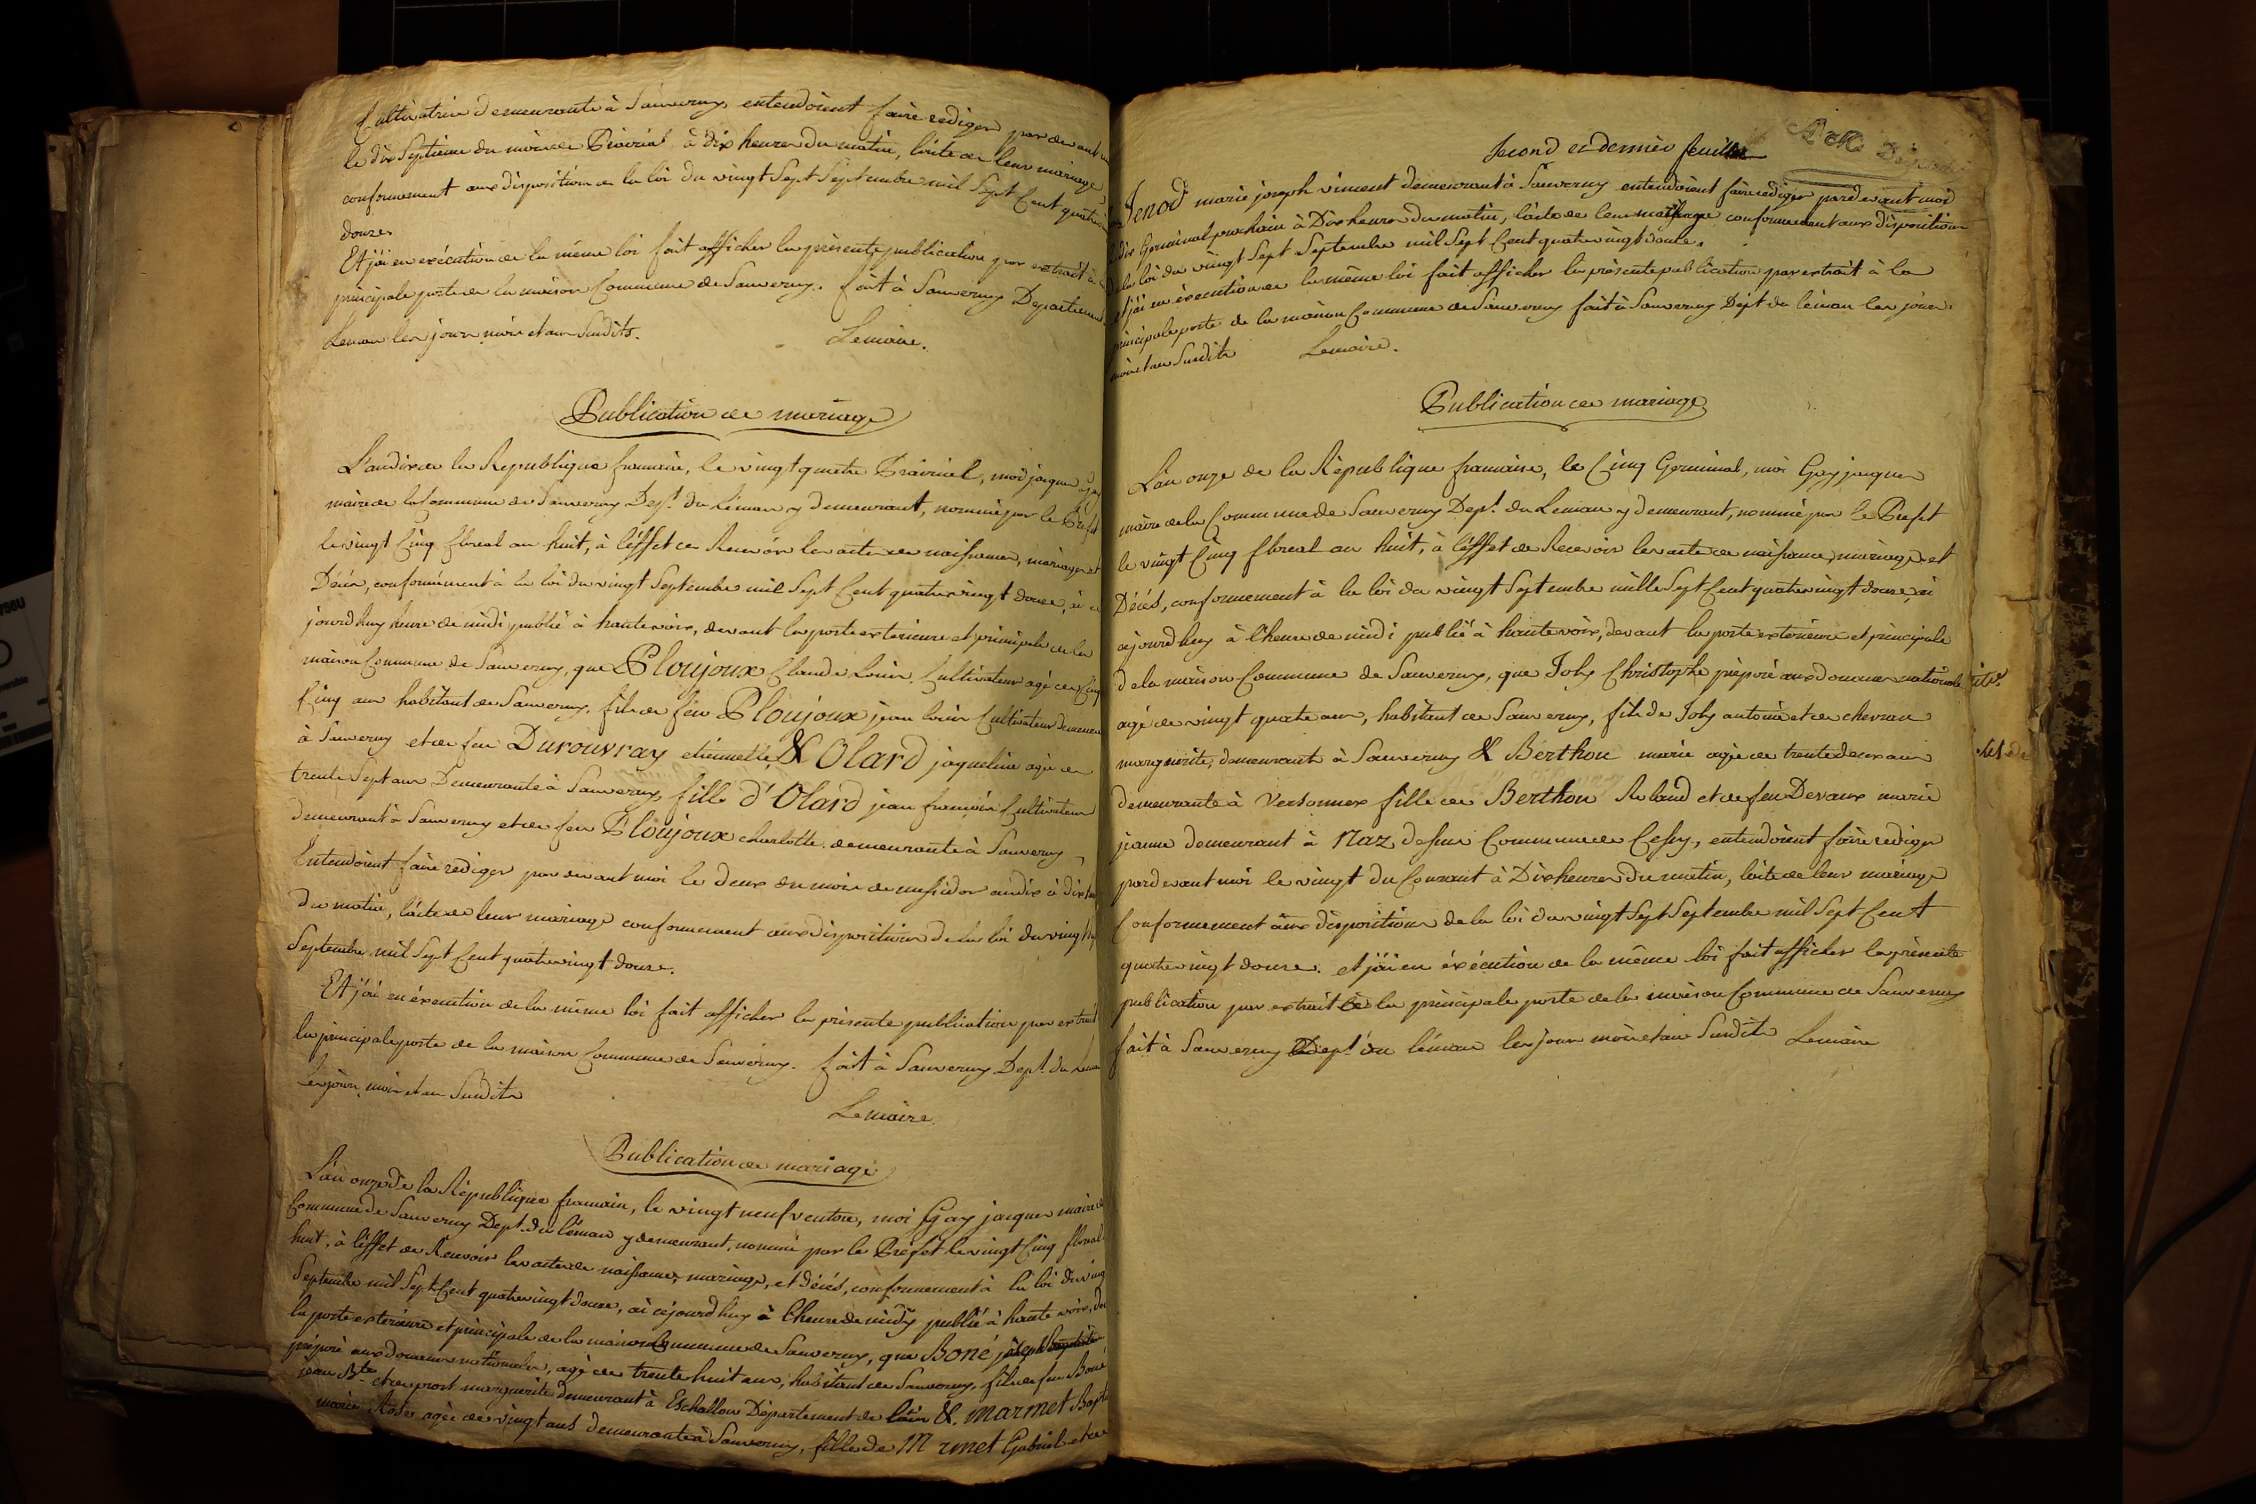 Cultivatrice demeurante à Sauverny entendoient faire rediger par devant
le dix Septieme du mois de Prairial à dix heures du matin, l'acte de leur mariage
conformement aux disposition de la loi du vingt Sept Septembre mil Sept Cent quatre
douze.
Et j'ai en exécution de la même loi fait afficher la présente publication par extrait à
principale porte de la maison Commune de Sauverny. fait à Sauverny Departement
Leman les jour mois et an Susdits.
Lemaire.
Publication de mariage
L'an dix de la Republique francaise, le vingt quatre Prairial, moi jacques
maire de la Commune de Sauverny Dept. du Leman y demeurant, nommé par le Prefet
le vingt Cinq floreal an huit, à l'éffet de Recevoir les actes de naissances, mariages et
Décès, conformément à la loi du vingt Septembre mil Sept Cent quatre vingt douze, ai
jourd'huy heure de midi publié à haute voix, devant la porte exterieure et principale de la
maison Commune de Sauverny, que Ploujoux Claude Louis Cultivateur agé de Cinq
Cinq ans habitant de Sauverny, fils de feu Ploujoux jean louis Cultivateur
à Sauverny et de feu Durouvray etiennette & Olard jaqueline agée de
trente Sept ans Demeurante à Sauverny, fille d'Olard jean francois Cultivateur
demeurant à Sauverny et de feu Ploujoux charlotte demeurante à Sauverny
Entendoient faire rediger par devant moi le deux du mois de messidor an dix à dix
du matin, l'acte de leur mariage conformement aux dispositions de la loi du vingt
Septembre mil Sept Cent quatre vingt douze.
Et j'ai en éxecution de la même loi fait afficher la présente publication par extrait
la principale porte de la maison Commune de Sauverny. fait à Sauverny Dept. du Leman
les jour mois et an Susdits
Lemaire
Publication de mariage
L'an onze de la République francaise, le vingt neuf ventose, moi Gay jacques maire de
Commune de Sauverny Dept. du léman y demeurant, nommé par le Préfet le vingt Cinq floreal
huit, à l'éffet de Recevoir les actes de naissance, mariage, et décés, conformement à la loi du vingt
Septembre mil Sept Cent quatre vingt douze, ai cejourd'huy à l'heure de midy publié à haute voix,
la porte exterieure et principale de la maison Commune de Sauverny, que Boné joseph
préposé aux douanes nationales, agé de trente huit ans, habitant de Sauverny, fils de feu Boné
jean Bte. et de prost marguerite demeurant à Eschallon Département de l'ain & Marmet
marie Rose agée de vingt ans demeurante à Sauverny, fille de Marmet Gabriel et de
Second et dernier feuillet
Jenod marie joseph viennent demeurant à Sauverny entendoient faire rediger pardevant moi
le dix Germinal prochain à Dix heures du matin, l'acte de leur mariage conformement aux disposition
de la loi du vingt Sept Septembre mil Sept Cent quatre vingt douze.
et j'ai en éxecution de la même loi fait afficher la présente publication par extrait à la
principale porte de la maison Commune de Sauverny fait à Sauverny Dépt du léman les jour
mois et an Susdits Lemaire.
Publication de mariage
L'an onze de la République francaise, le Cinq Germinal, moi Gay jacques
maire de la Commune de Sauverny Dept. du Leman y demeurant, nommé par le Prefet
le vingt Cinq floreal an huit, à l'éffet de Recevoir les acte de naissance, mariages et
Décés, conformement à la loi du vingt Septembre mille Sept Cent quatre vingt douze, ai
ajourd'huy à l'heure de midi publié à haute voix, devant la porte exterieure et principale
de la maison Commune de Sauverny, que Joly Christophe préposé aux douanes nationale
agé de vingt quatre ans, habitant de Sauverny, fils de Joly antoine et de chevran
marguerite, demeurants à Sauverny & Berthou marie agée de trente deux ans
demeurante à Versonnex fille de Berthou Roland et de feu Devaux marie
jeanne demeurant à Naz dessus Commune de Cessy, entendoient faire rediger
pardevant moi le vingt du Courant à Dix heures du matin, l'acte de leur mariage
Conformement aux dispositions de la loi du vingt Sept Septembre mil Sept Cent
quatre vingt douze. et j'ai en éxécution de la même loi fait afficher la présente
publication par extrait à la principale porte de la maison Commune de Sauverny
fait à Sauverny Dept. du léman les jour mois et an Susdits Lemaire